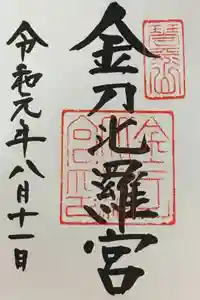 金刀比羅宮
令和元年八月十一日